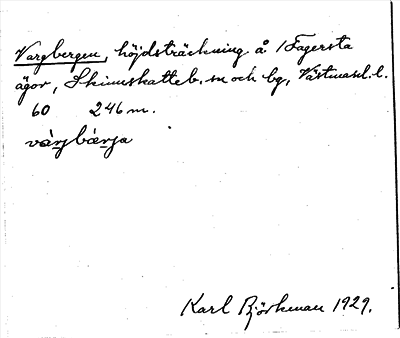 Vargbergen, höjdsträckning å /Fagersta
ägor, Skinnskatteb. sn och bg, Västmanl. l.
60 246 m.
várjbærja
Karl Björkman 1929.